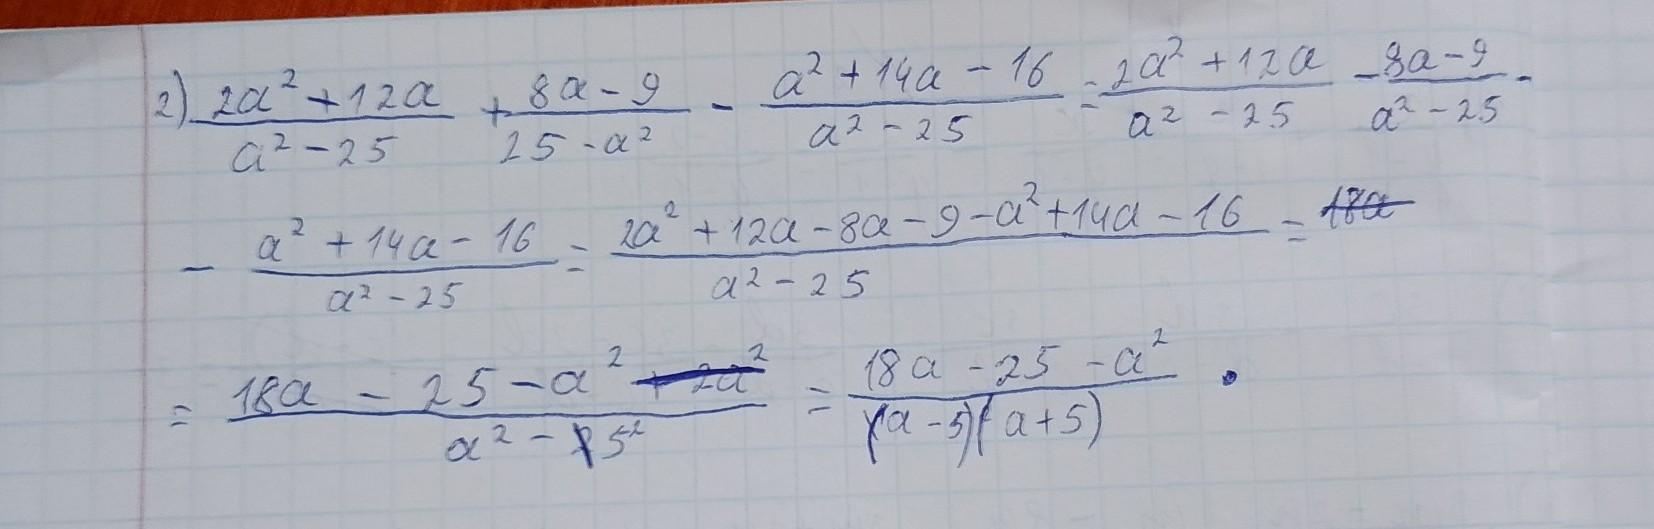 2) (2a² + 12a)/(a² - 25) + (8a - 9)/(25 - a²) - (a² + 14a - 16)/(a² - 25) = (2a² + 12a)/(a² - 25) - (8a - 9)/(a² - 25) -
- (a² + 14a - 16)/(a² - 25) = (2a² + 12a - 8a - 9 - a² + 14a - 16)/(a² - 25) = 18a
= (18a - 25 - a² + 2a²)/(a² - 5²) = (18a - 25 - a²)/((a - 5)(a + 5)) .